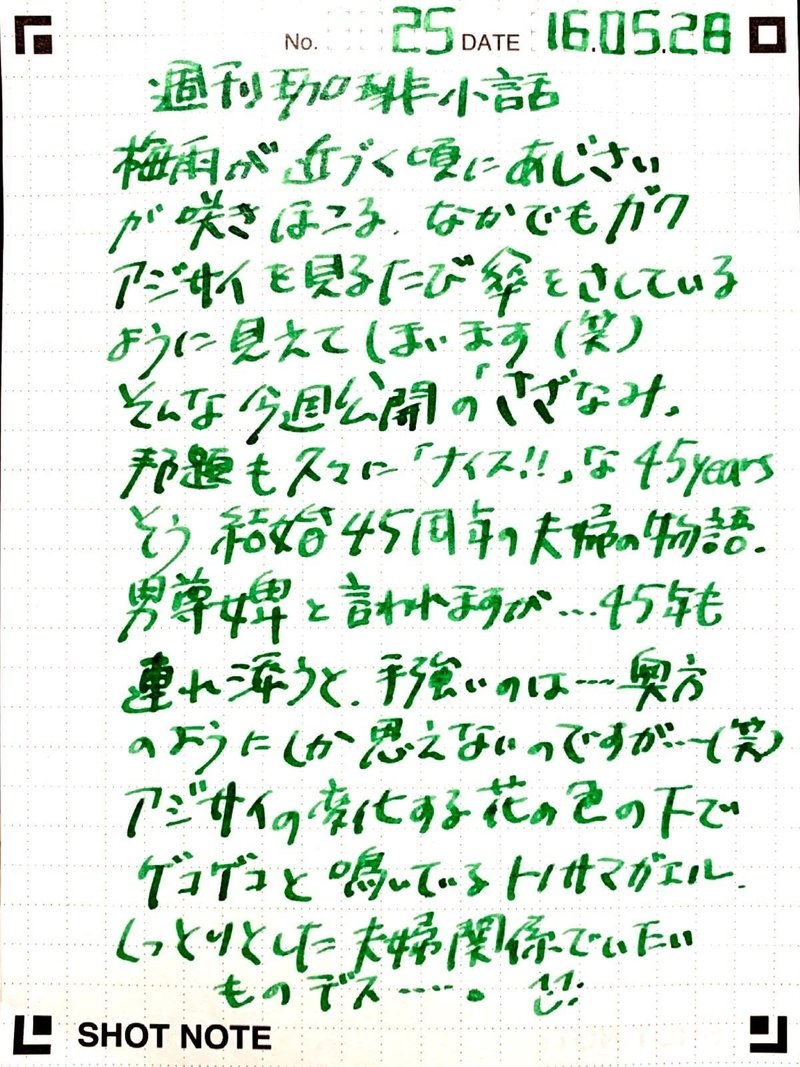 No. 25 DATE 16.05.28
週刊珈琲小話
梅雨が近づく頃にあじさい
が咲きほこる。なかでもガク
アジサイを見るたび傘をさしている
ように見えてしまいます(笑)
そんな今週公開の「さざなみ」
邦題も久々に「ナイス!!」な45years
そう結婚45周年の夫婦の物語.
男尊女卑と言われますが…45年も
連れ添うと、手強いのは…奥方
のようにしか思えないのですが…(笑)
アジサイの変化する花の色の下で
ゲコゲコと鳴いているトノサマガエル.
しっとりとした夫婦関係でいたい
ものデス….。
SHOT NOTE